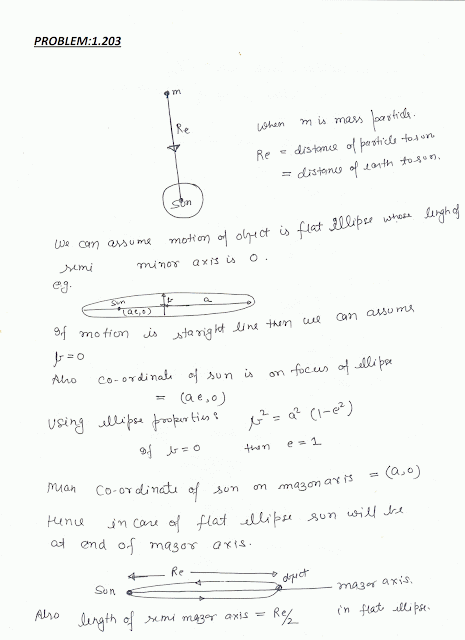 PROBLEM:1.203
m
Re
Sun
when m is mass particle.
Re = distance of particle to sun
= distance of earth to sun.
We can assume motion of object is flat ellipse whose lengh of
semi minor axis is 0.
eg.
Sun b a
(ae,0)
If motion is staright line then we can assume
b=0
Also co-ordinate of sun is on focus of ellipse
= (ae,0)
Using ellipse properties: b² = a² (1-e²)
If b=0 then e=1
Mean co-ordinate of sun on mazon axis = (a,0)
Hence in case of flat ellipse sun will be
at end of mazor axis.
Re
Sun object mazor axis.
Also length of semi mazor axis = Re/2 in flat ellipse.